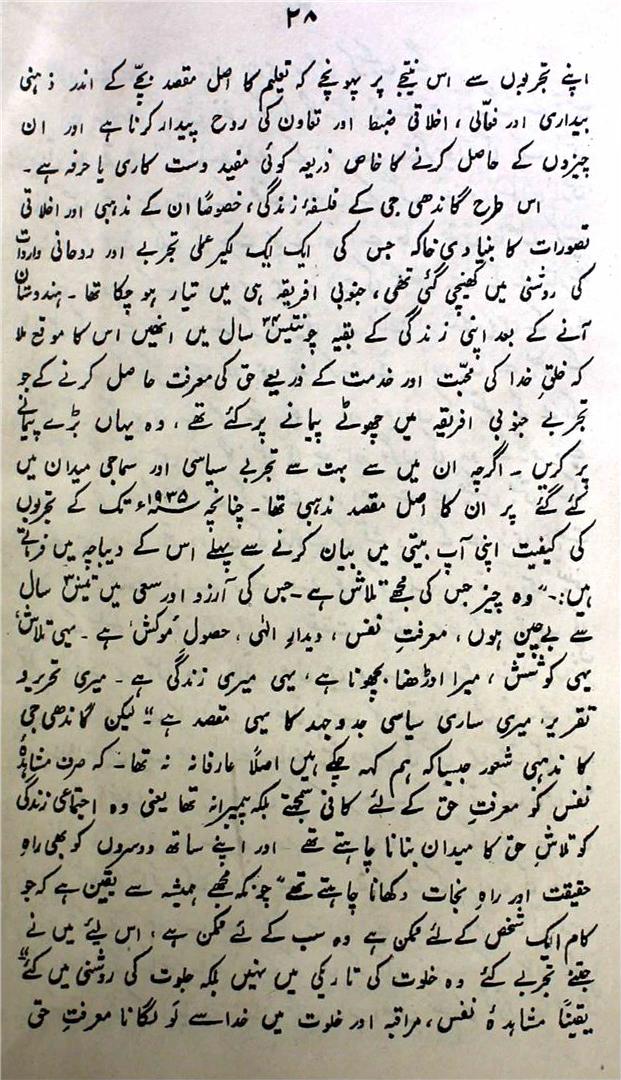 ۲۸
اپنے تجربوں سے اس نتیجے پر پہونچے کہ تعلیم کا اصل مقصد بچے کے اندر ذہنی
بیداری اور فعّالی، اخلاقی ضبط اور تعاون کی روح پیدا کرنا ہے اور ان
چیزوں کے حاصل کرنے کا خاص ذریعہ کوئی مفید دست کاری یا حرفہ ہے۔
اس طرح گاندھی جی کے فلسفۂ زندگی، خصوصاً ان کے مذہبی اور اخلاقی
تصورات کا بنیادی خاکہ جس کی ایک ایک لکیر عملی تجربے اور روحانی واردات
کی روشنی میں کھینچی گئی تھی، جنوبی افریقہ ہی میں تیار ہو چکا تھا۔ ہندوستان
آنے کے بعد اپنی زندگی کے بقیہ چونتیس ۳۴ سال میں انھیں اس کا موقع ملا
کہ خلقِ خدا کی محبّت اور خدمت کے ذریعے حق کی معرفت حاصل کرنے کے جو
تجربے جنوبی افریقہ میں چھوٹے پیمانے پر کئے تھے، وہ یہاں بڑے پیمانے
پر کریں۔ اگرچہ ان میں سے بہت سے تجربے سیاسی اور سماجی میدان میں
کئے گئے پر ان کا اصل مقصد مذہبی تھا۔ چنانچہ ۱۹۳۵ء تک کے تجربوں
کی کیفیت اپنی آپ بیتی میں بیان کرنے سے پہلے اس کے دیباچہ میں فرماتے
ہیں:۔ "وہ چیز جس کی مجھے تلاش ہے۔ جس کی آرزو اور سعی میں تیس ۳۰ سال
سے بےچین ہوں، معرفتِ نفس، دیدارِ الٰہی، حصولِ 'موکش' ہے۔ یہی تلاش'
یہی کوشش، میرا اوڑھنا بچھونا ہے، یہی میری زندگی ہے۔ میری تحریر و
تقریر، میری ساری سیاسی جدوجہد کا یہی مقصد ہے" لیکن گاندھی جی
کا مذہبی شعور جیسا کہ ہم کہہ چکے ہیں اصلاً عارفانہ نہ تھا۔ کہ صرف مشاہدۂ
نفس کو معرفتِ حق کے لئے کافی سمجھتے بلکہ پیمبرانہ تھا یعنی وہ اجتماعی زندگی
کو تلاشِ حق کا میدان بنانا چاہتے تھے اور اپنے ساتھ دوسروں کو بھی راہِ
حقیقت اور راہِ نجات دکھانا چاہتے تھے "چونکہ مجھے ہمیشہ سے یقین ہے کہ جو
کام ایک شخص کے لئے ممکن ہے وہ سب کے لئے ممکن ہے، اس لیے میں نے
جتنے تجربے کئے وہ خلوت کی تاریکی میں نہیں بلکہ جلوت کی روشنی میں کئے"
یقیناً مشاہدۂ نفس، مراقبہ اور خلوت میں خدا سے لَو لگانا معرفتِ حق